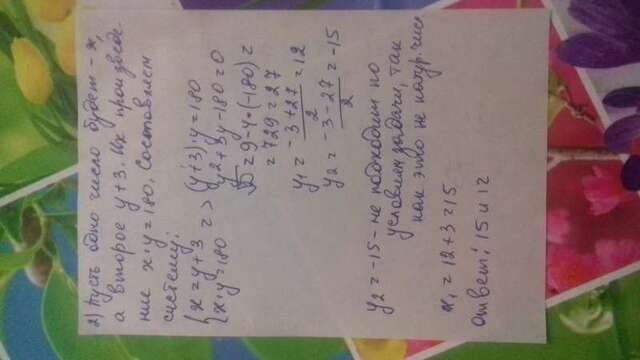 2) Пусть одно число будет - x,
а второе y+3. Их произведе-
ние x·y=180. Составляем
систему:
{x=y+3 => (y+3)·y=180
{x·y=180 y²+3y-180=0
D=9-4*(-180)=
=729=27
y₁=(-3+27)/2=12
y₂=(-3-27)/2=-15
y₂=-15-не подходит по
условиям задачи, так
как это не натур. чис
x₁=12+3=15
Ответ: 15 и 12